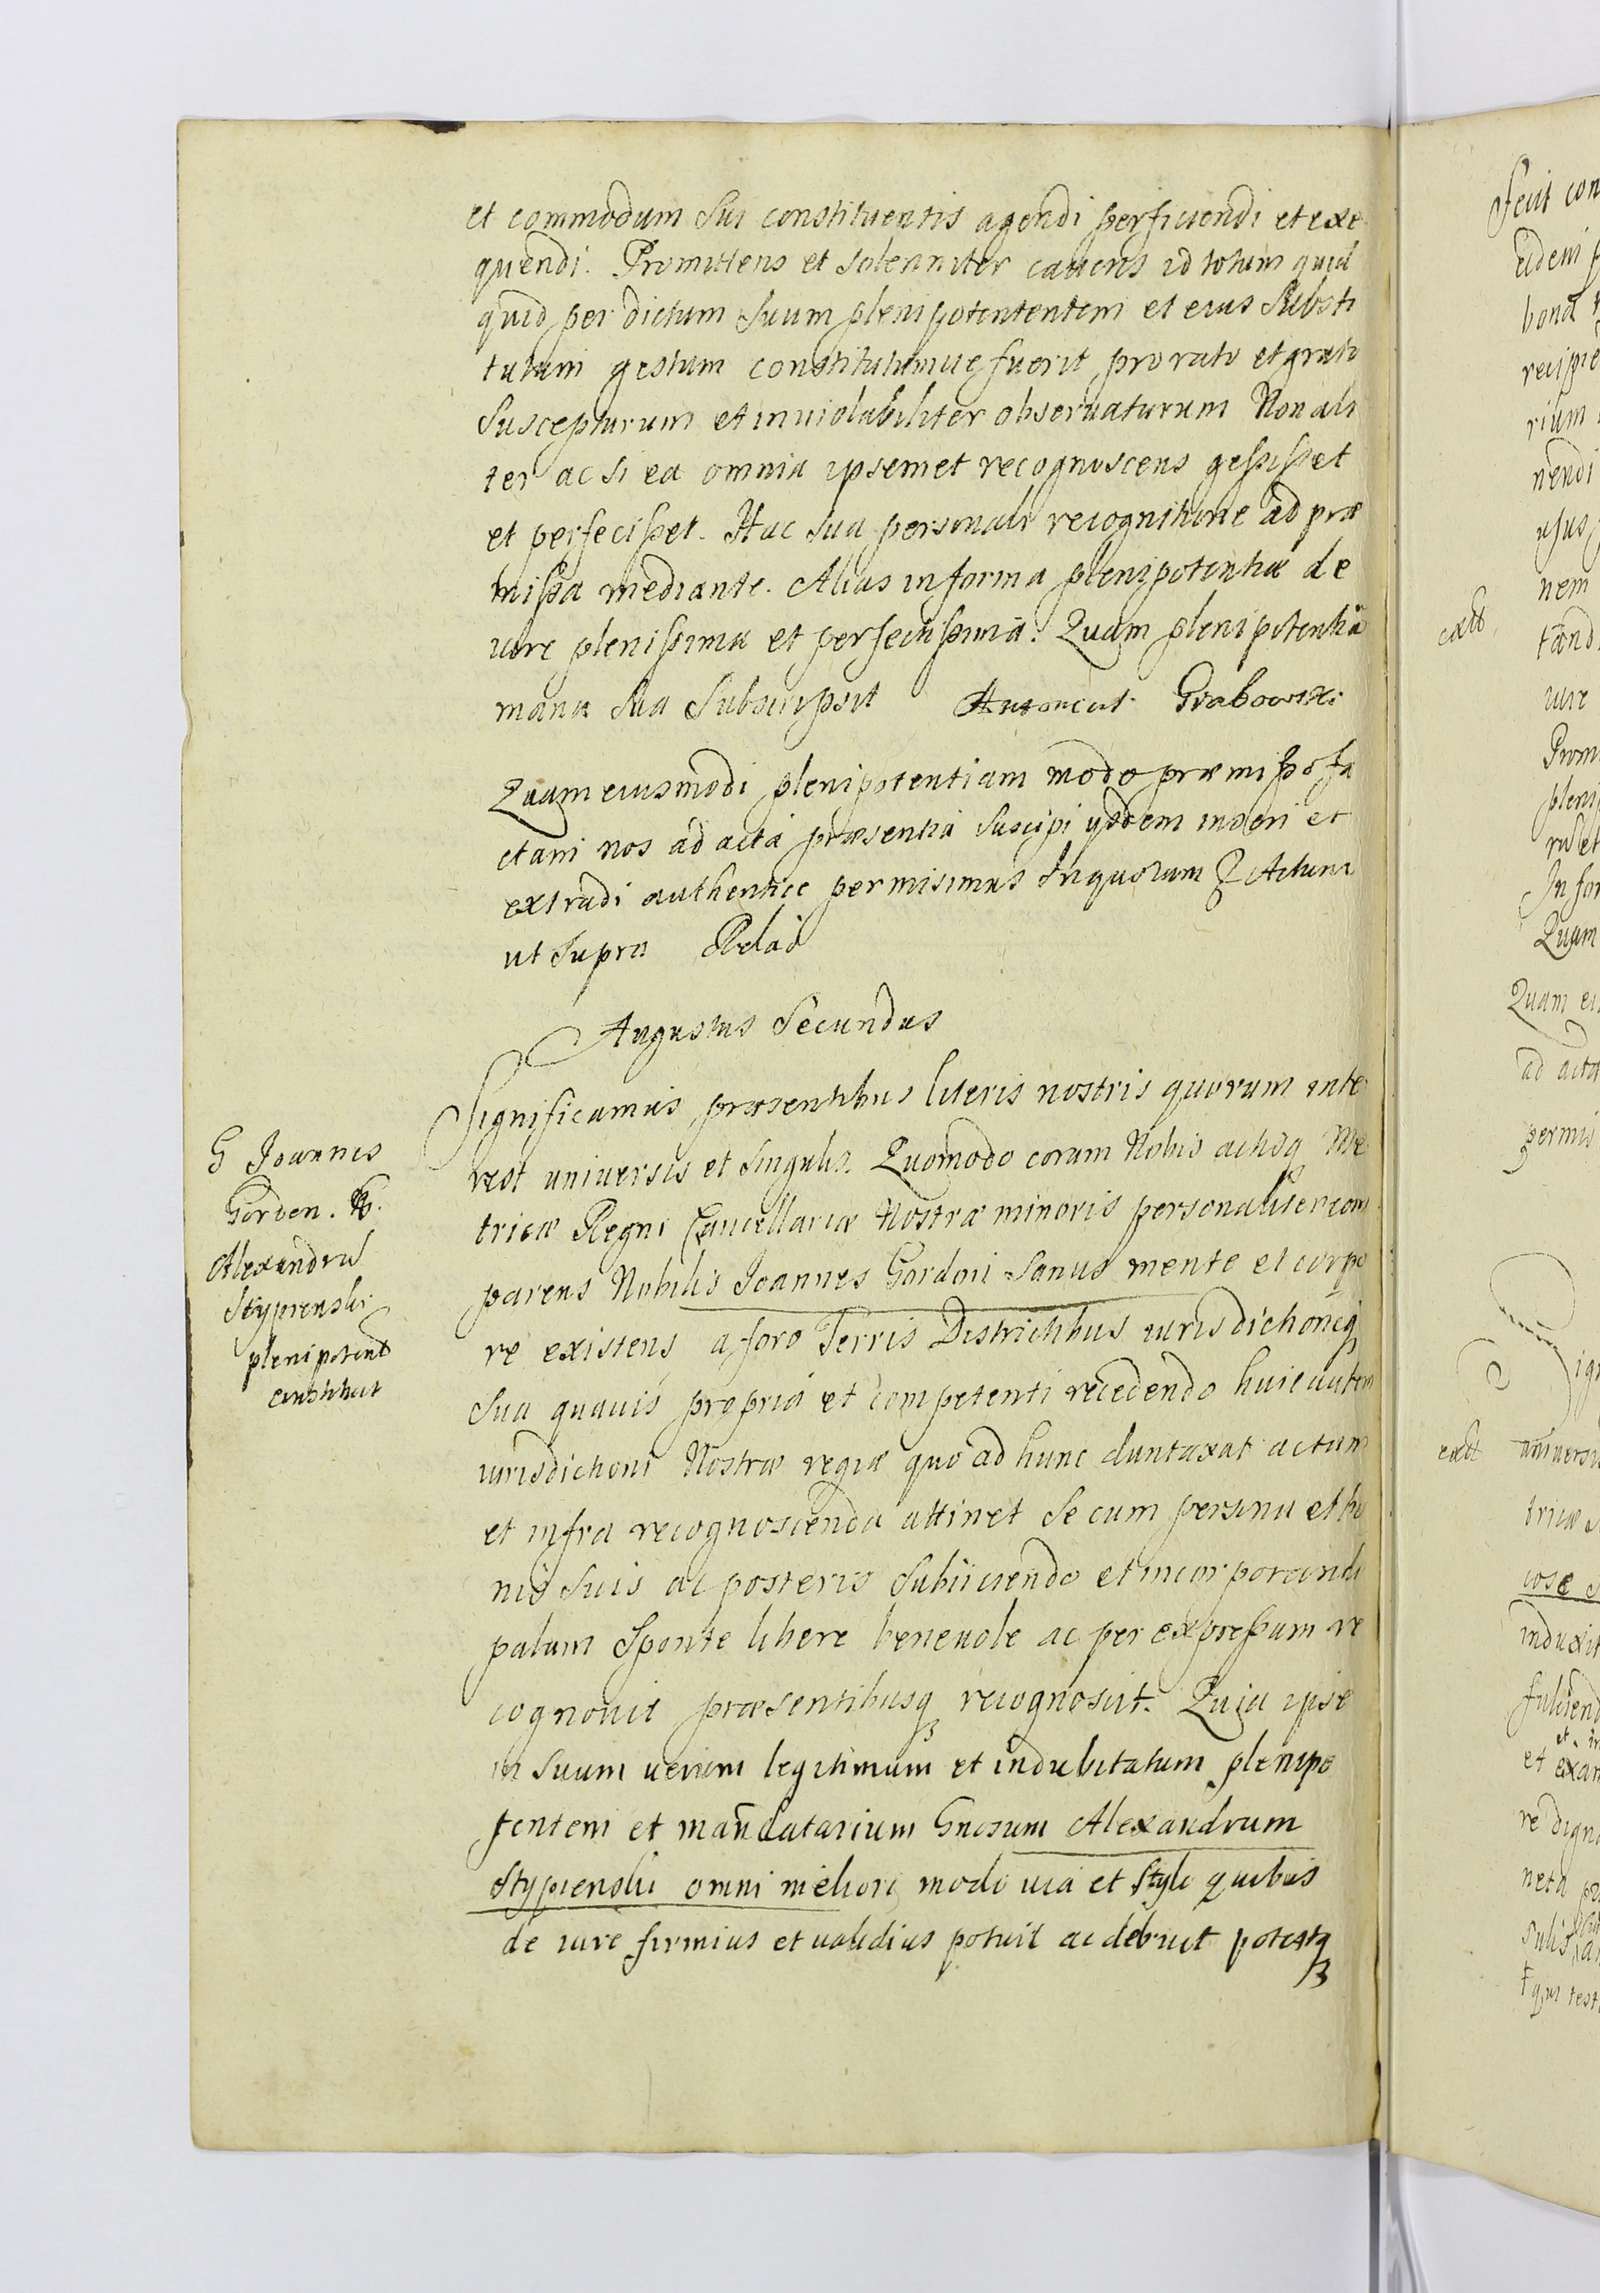 et commodum sui constituentis agendi perficiendi et exe
quendi. Promittens et solenniter cavens id totum quid
quid per dictum suum plenipotententem et eius substi
tutum gestum constitutumue fuerit pro rato et grato
suscepturum et inuiolabiliter obseruaturum Non ali
ter ac si ea omnia ipsemet recognoscens gessisset
et perfecisset. Hac sua personali recognitione ad præ
missa mediante. Alias in forma plenipotentiæ de
iure plenissima et perfectissima. Quam plenipotentiã
manu sua subscripsit Grabowski
Quam eiusmodi plenipotentiam modo præmisso fa
ctam nos ad acta præsentia suscipi ysdem inseri et
extradi authentice permisimus In quorum Actum
ut supra Relaõ
Augustus Secundus
Significamus præsentibus literis nostris quorum inte
rest universis et singulis. Quomodo coram Nobis actisq Me
tricæ Regni Cancellariæ Nostræ minoris personaliter com
parens Nobilis Joannes Gordon sanus mente et corpo
re existens a foro Terris Districtibus iurisdictioneq
sua quauis propria et competenti recedendo huic autem
iurisdictioni Nostræ regiæ quo ad hunc duntaxat actum
et infra recognoscenda attinet se cum persona et bo
nis suis ac posteris subiiciendo et incorporando
palam sponte libere beneuole ac per expressum re
cognouit præsentibusq recognoscit. Quia ipse
in suum verum legitimum et indubitatum plenipo
tentem et mandatarium Gnosum Alexandrum
Stypienski omni meliori modo uia et stylo quibus
de iure firmius et ualidius potuit ac debuit potestq
G Joannes
Gordon.
Alexandrũ
Stypienski
plenipotent
constituit
Fecit con
eidem p
bona
recipie
rium
nendi
usus
nem
extt
tand
iure
Prom
plenip
ru et
In for
Quam
Quam ei
ad acta
permis
ign
extt universis
tricæ
iose
induxit
fulciend
et
et exan
re digno
neta
sulis
tqm test